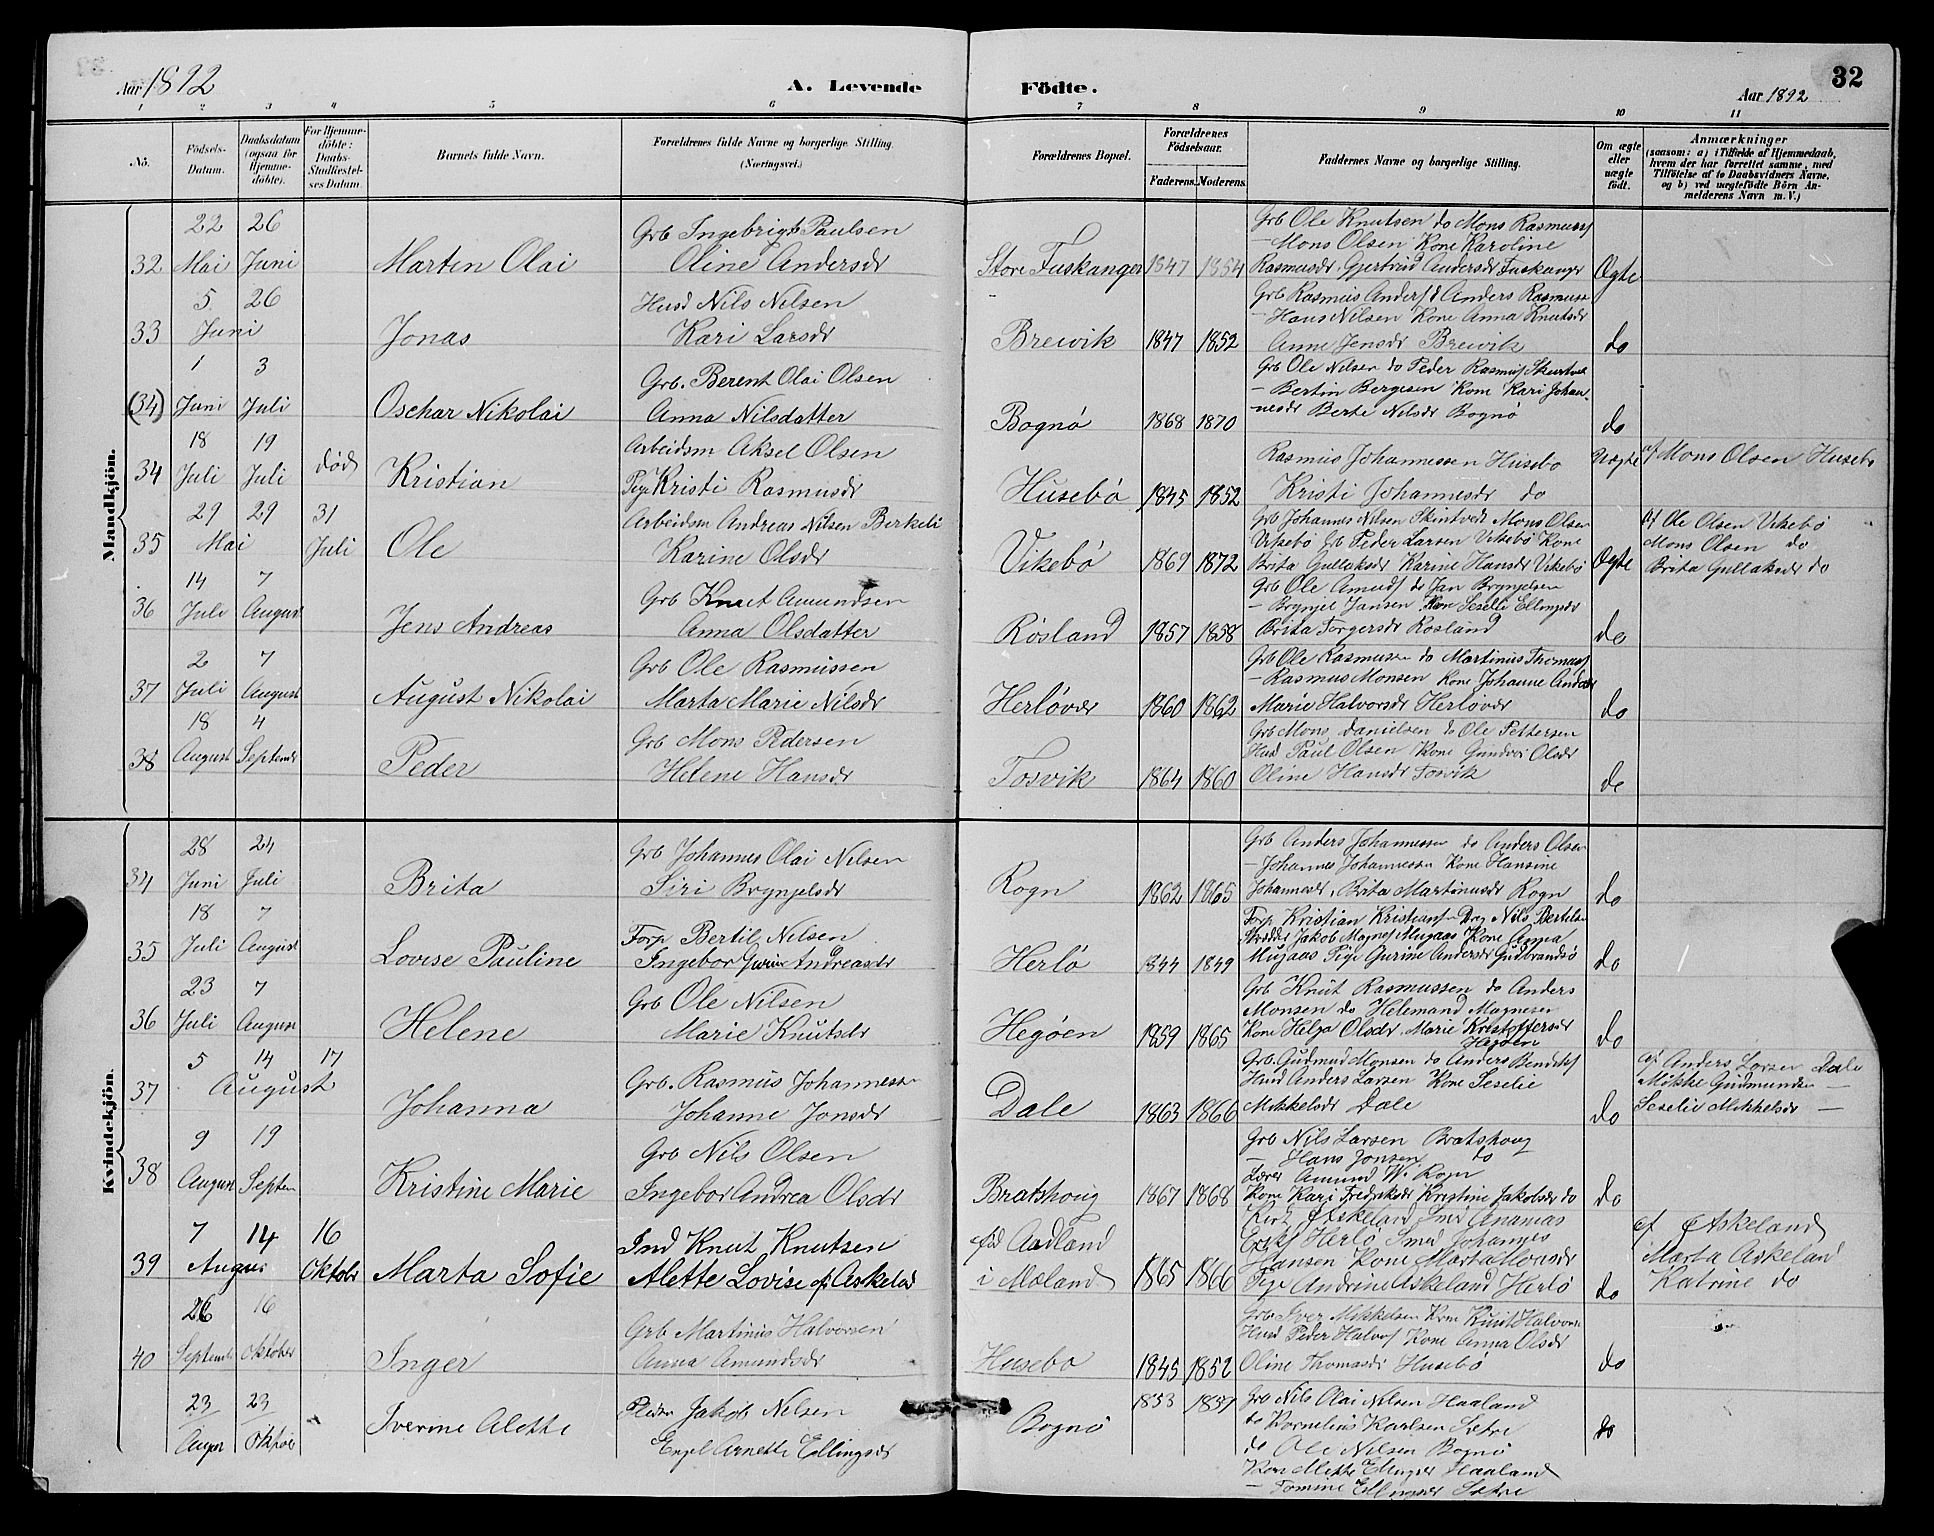 Aar 1892
A. Levende Födte.
Aar 1892
32
1 2 3 4 5 6 7 8 9 10 11
No.
Födsels-Datum.
Daabsdatum (ogsaa for Hjemme-döbte).
For Hjemme-döbte: Daabs-Stadfæstel-ses Datum.
Barnets fulde Navn.
Forældrenes fulde Navne og borgerlige Stilling.
(Næringsvei.)
Forældrenes Bopæl.
Forældrenes Födselsaar.
Faderens. Moderens.
Faddernes Navne og borgerlige Stilling.
Om ægte eller uægte födt.
Anmærkninger
(saasom: a) i Tilfælde af Hjemmedaab, hvem der har forrettet samme, med Tilföielse af to Daabsvidners Navne, og b) ved uægtefödte Börn An-melderens Navn m. V.)
Mandkjön.
32 22 Mai 26 Juni Marten Olai
Grb Ingebrigt Paulsen
Oline Andersdr
Store Tuskanger 1847 1854
Grb Ole Knutsen do Mons Rasmuss
— Mons Olsen Kone Karoline
Rasmusdr Gjertrud Andersdr Tuskanger
Ægte
33 5 26 Juni Jonas
Husd Nils Nilsen
Kari Larsdr
Breivik 1847 1852
Grb Rasmus Anders d Anders Rasmuss
— Hans Nilsen Kone Anna Knutsdr
Anne Jensdr Breivik
do
(34) 1 Juni 3 Juli Oschar Nikolai
Grb. Berent Olai Olsen
Anna Nilsdatter
Bognø 1868 1870
Grb Ole Nilsen do Peder Rasmus
— Bertin Bergesen Kone Kari Johan-
nesdr Berte Nilsdr Bognø
do
34 18 Juli 19 Juli død Kristian
Arbeidsm Aksel Olsen
Pige Kristi Rasmusdr
Husebö 1845 1852
Rasmus Johannessen Husebo
Kristi Johannesdr do
Uægte
af Mons Olsen Husebo
35 29 29 Mai 31 Juli Ole
Arbeidsm Andreas Nilsen Berkeli
Karine Olsdr
Vikebö 1869 1872
Grb Johannes Nilsen Skintveit Mons Olsen
Vikebö Grb Peder Larsen Vikebö Kone
Brita Gullaksdr Karine Hansdr Vikebö
Ægte
af Ole Olsen Vikebö
Mons Olsen do
Brita Gullaksdr do
36 14 Juli 7 August Jens Andreas
Grb Knut Amundsen
Anna Olsdatter
Røsland 1857 1858
Grb Ole Amuds do Jan Brynjelsen
— Brynjel Jansen Kone Seselie Ellingsdr
Brita Torgersdr Rosland
do
37 2 Juli 7 August August Nikolai
Grb Ole Rasmussen
Marta Marie Nilsdr
Herløvær 1860 1862
Grb Ole Rasmussen do Martinus Thomass
— Rasmus Monsen Kone Johanne Andersdr
Marie Halvorsdr Herløvær
do
38 18 August 4 Septembr Peder
Grb Mons Pedersen
Helene Hansdr
Tosvik 1864 1860
Grb Mons Danielsen do Ole Pettersen
Husd Paul Olsen Kone Gundvor Olsdr
Oline Hansdr Tosvik
do
Kvindekjön.
34 28 Juni 24 Juli Brita
Grb Johannes Olai Nilsen
Siri Brynjelsdr
Rogn 1862 1865
Grb Anders Johannessen do Anders Olsen
— Johannes Johannessen Kone Hansine
Johannesdr, Brita Martinusdr Rogn
do
35 18 Juli 7 August Lovise Pauline
Forp Bertil Nilsen
Ingebor Gurine Andreasdr
Herlø 1844 1849
Forp Kristian Kristians Drg Nils Bertelsen
Skrædder Jakob Magnes Mugaas Kone Anna
Mugaas Pige Gurine Andersdr Gudbrandsø
do
36 23 Juli 7 August Helene
Grb Ole Nilsen
Marie Knutsdr
Hegøen 1859 1865
Grb Knut Rasmussen do Anders
Monsen do Helemand Magnesen
Kone Helga Olsdr, Marie Kristoffersdr
Hegøen
do
37 5 14 17 August Johanna
Grb. Rasmus Johannessen
Johanne Jonsdr
Dale 1863 1866
Grb. Gudmud Monsen do Anders Bendiks
Husd Anders Larsen Kone Seselie
Mikkelsdr Dale
do
af Anders Larsen Dale
Mikkel Gudmundsen —
Seselie Mikkelsdr —
38 9 August 19 Septem Kristine Marie
Grb Nils Olsen
Ingebor Andrea Olsdr
Bratshoug 1867 1868
Grb Nils Larsen Bratshoug
— Hans Jonsen do
Lærer Amund W. Rogn
Kone Kari Fredriksdr Kristine Jakobsdr do
do
39 7 14 Augus 16 Oktobr Marta Sofie
Ind Knut Knutsen
Alette Lovise f Askeland
fød Aadland
i Mæland 1865 1866
Kirk Askeland Smed Ananias
Eriks Herlo Smed Johannes
Hansen Kone Marta Monsdr
Pige Andrine Askeland Herlo
do
af Askeland
Marta Askeland
Katrine do
40 26 Septemb 16 Oktober Inger
Grb Martinus Halvorsen
Anna Amundsdr
Husebo 1845 1852
Grb Iver Mikkelsen Kone Knut Halvors
Husd Peder Halvors Kone Anna Olsdr
Oline Thomasdr Husebö
do
23 Augus 23 Oktobr Iverine Alette
Jakob Nelsen
Engel Arnette Ellingsdr
Bognø 1853 1857
Grb Nils Olai Nilsen Haaland
do Kornelius Karlsen Sætre
do Ole Nilsen Bognø
Kone Mette Ellingsdr Haaland
— Tomine Ellingsdr Sætre
do